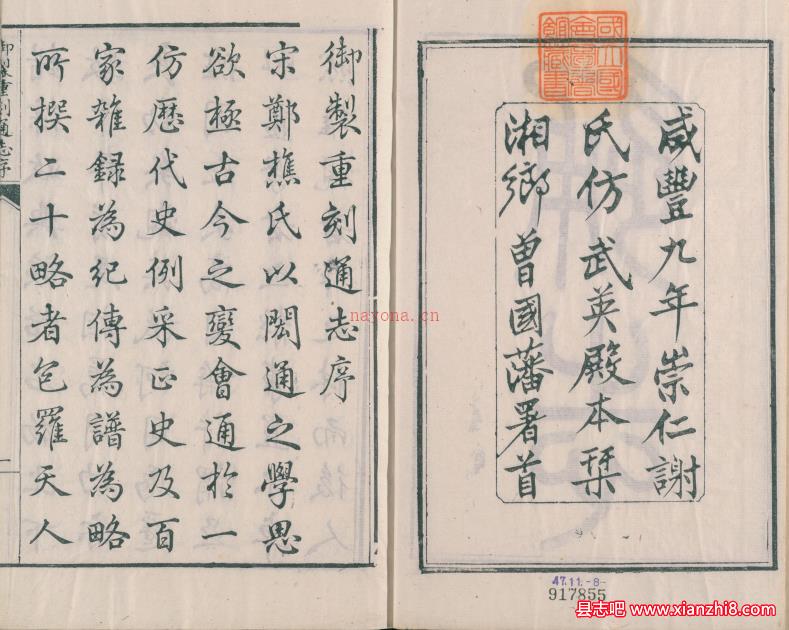 咸豐九年崇仁謝
氏仿武英殿本栞
湘鄉曾國藩署首
國立國
會圖書
館藏書
47.11.-8-
917855
御製重刻通志序
宋鄭樵氏以閎通之學思
欲極古今之變會通於一
仿歷代史例采正史及百
家雜録為紀傳為譜為略
所撰二十略者包羅天人
御製重刻通志序
一
nayona.cn
县志吧 www.xianzhi8.com